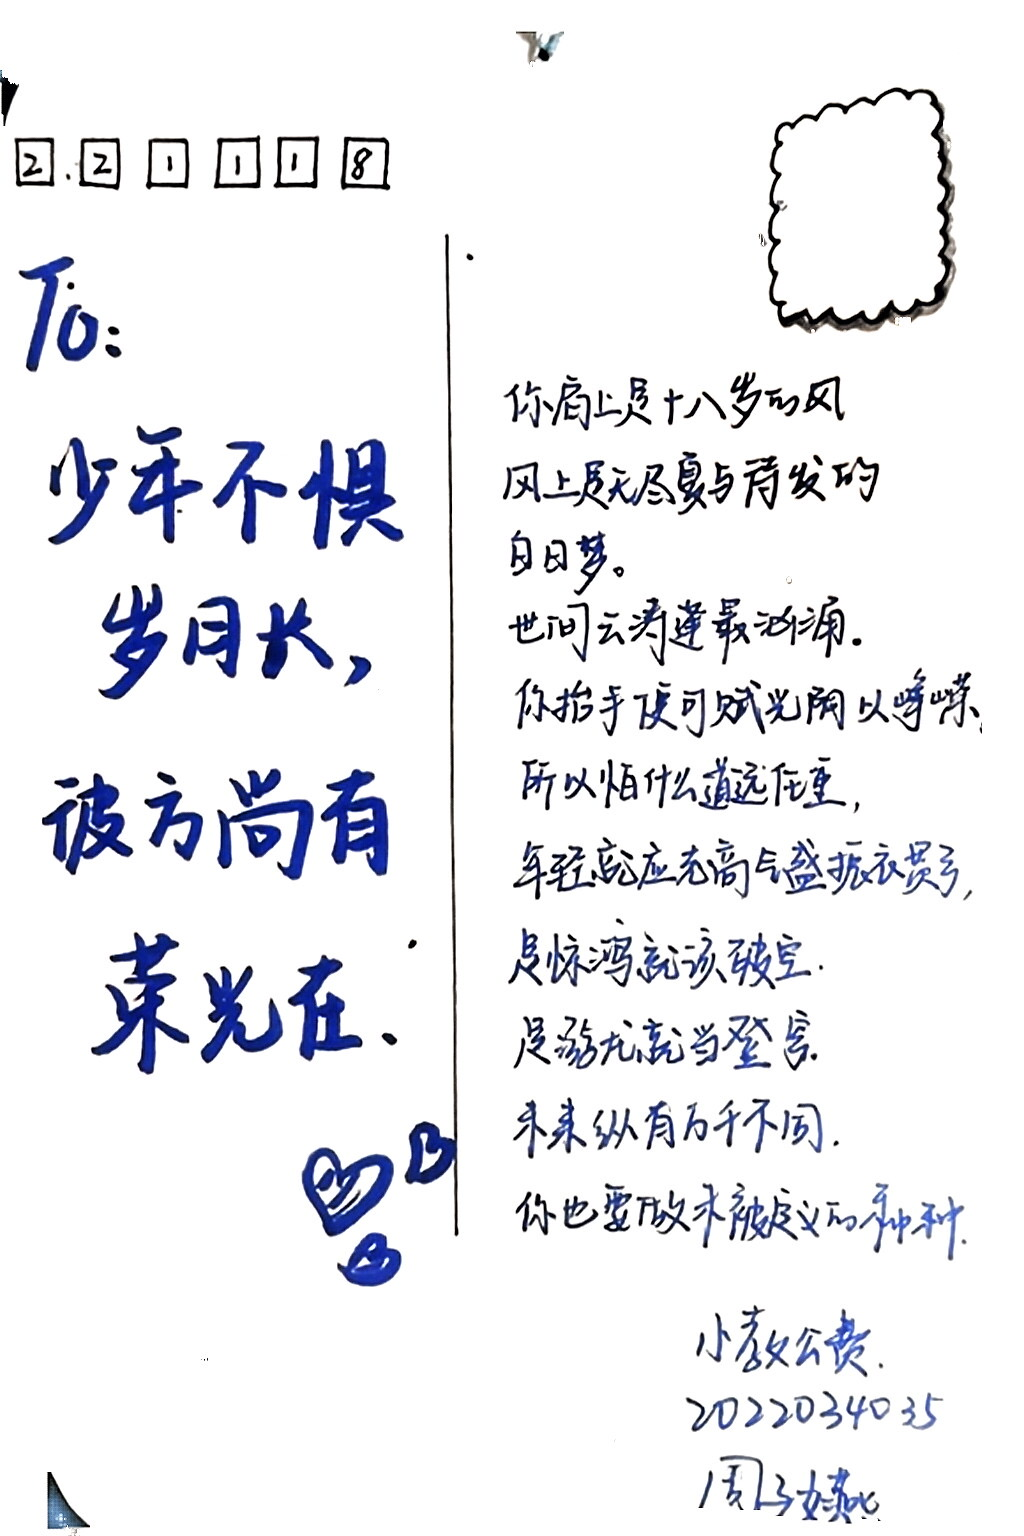 221118
To:
少年不惧
岁月长,
彼方尚有
荣光在.
你肩上是十八岁的风
风上是无尽夏与待发的
白日梦。
世间云涛逢最汹涌。
你抬手便可赋光阴以峥嵘,
所以怕什么道远任重,
年轻就应志高气盛振衣贯弓,
是惊鸿就该破空.
是游龙就当登
未来纵有万千不同.
你也要做未被定义的种种.
小教公费.
2022034035
周